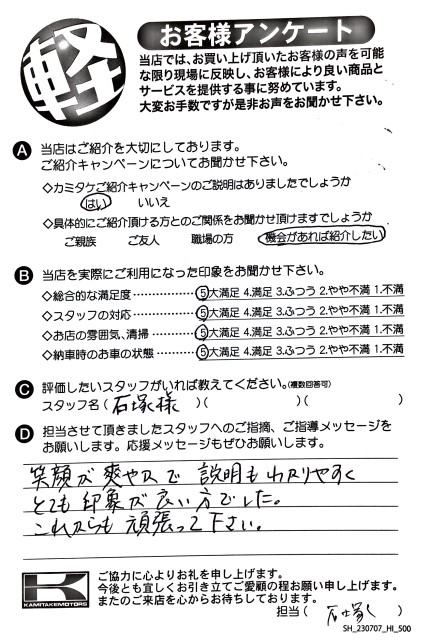 軽
お客様アンケート
当店では、お買い上げ頂いたお客様の声を可能
な限り現場に反映し、お客様により良い商品と
サービスを提供する事に努めています。
大変お手数ですが是非お声をお聞かせ下さい。
A 当店はご紹介を大切にしております。
ご紹介キャンペーンについてお聞かせ下さい。
◇カミタケご紹介キャンペーンのご説明はありましたでしょうか
はい いいえ
◇具体的にご紹介頂ける方とのご関係をお聞かせ頂けますでしょうか
ご親族 ご友人 職場の方 機会があれば紹介したい
B 当店を実際にご利用になった印象をお聞かせ下さい。
◇総合的な満足度……………⑤大満足 4.満足 3.ふつう 2.やや不満 1.不満
◇スタッフの対応……………⑤大満足 4.満足 3.ふつう 2.やや不満 1.不満
◇お店の雰囲気、清掃…………⑤大満足 4.満足 3.ふつう 2.やや不満 1.不満
◇納車時のお車の状態…………⑤大満足 4.満足 3.ふつう 2.やや不満 1.不満
C 評価したいスタッフがいれば教えてください。(複数回答可)
スタッフ名(石塚様)( )( )
D 担当させて頂きましたスタッフへのご指摘、ご指導メッセージを
お願いします。応援メッセージもぜひお願いします。
笑顔が爽やかで 説明も わかりやすく
とても 印象が良い方でした。
これからも 頑張って下さい。
K KAMITAKEMOTORS
ご協力に心よりお礼を申し上げます。
今後とも宜しくお引き立てご愛顧の程お願い申し上げます。
またのご来店を心からお待ちしております。
担当(石塚)
SH_230707_HI_500